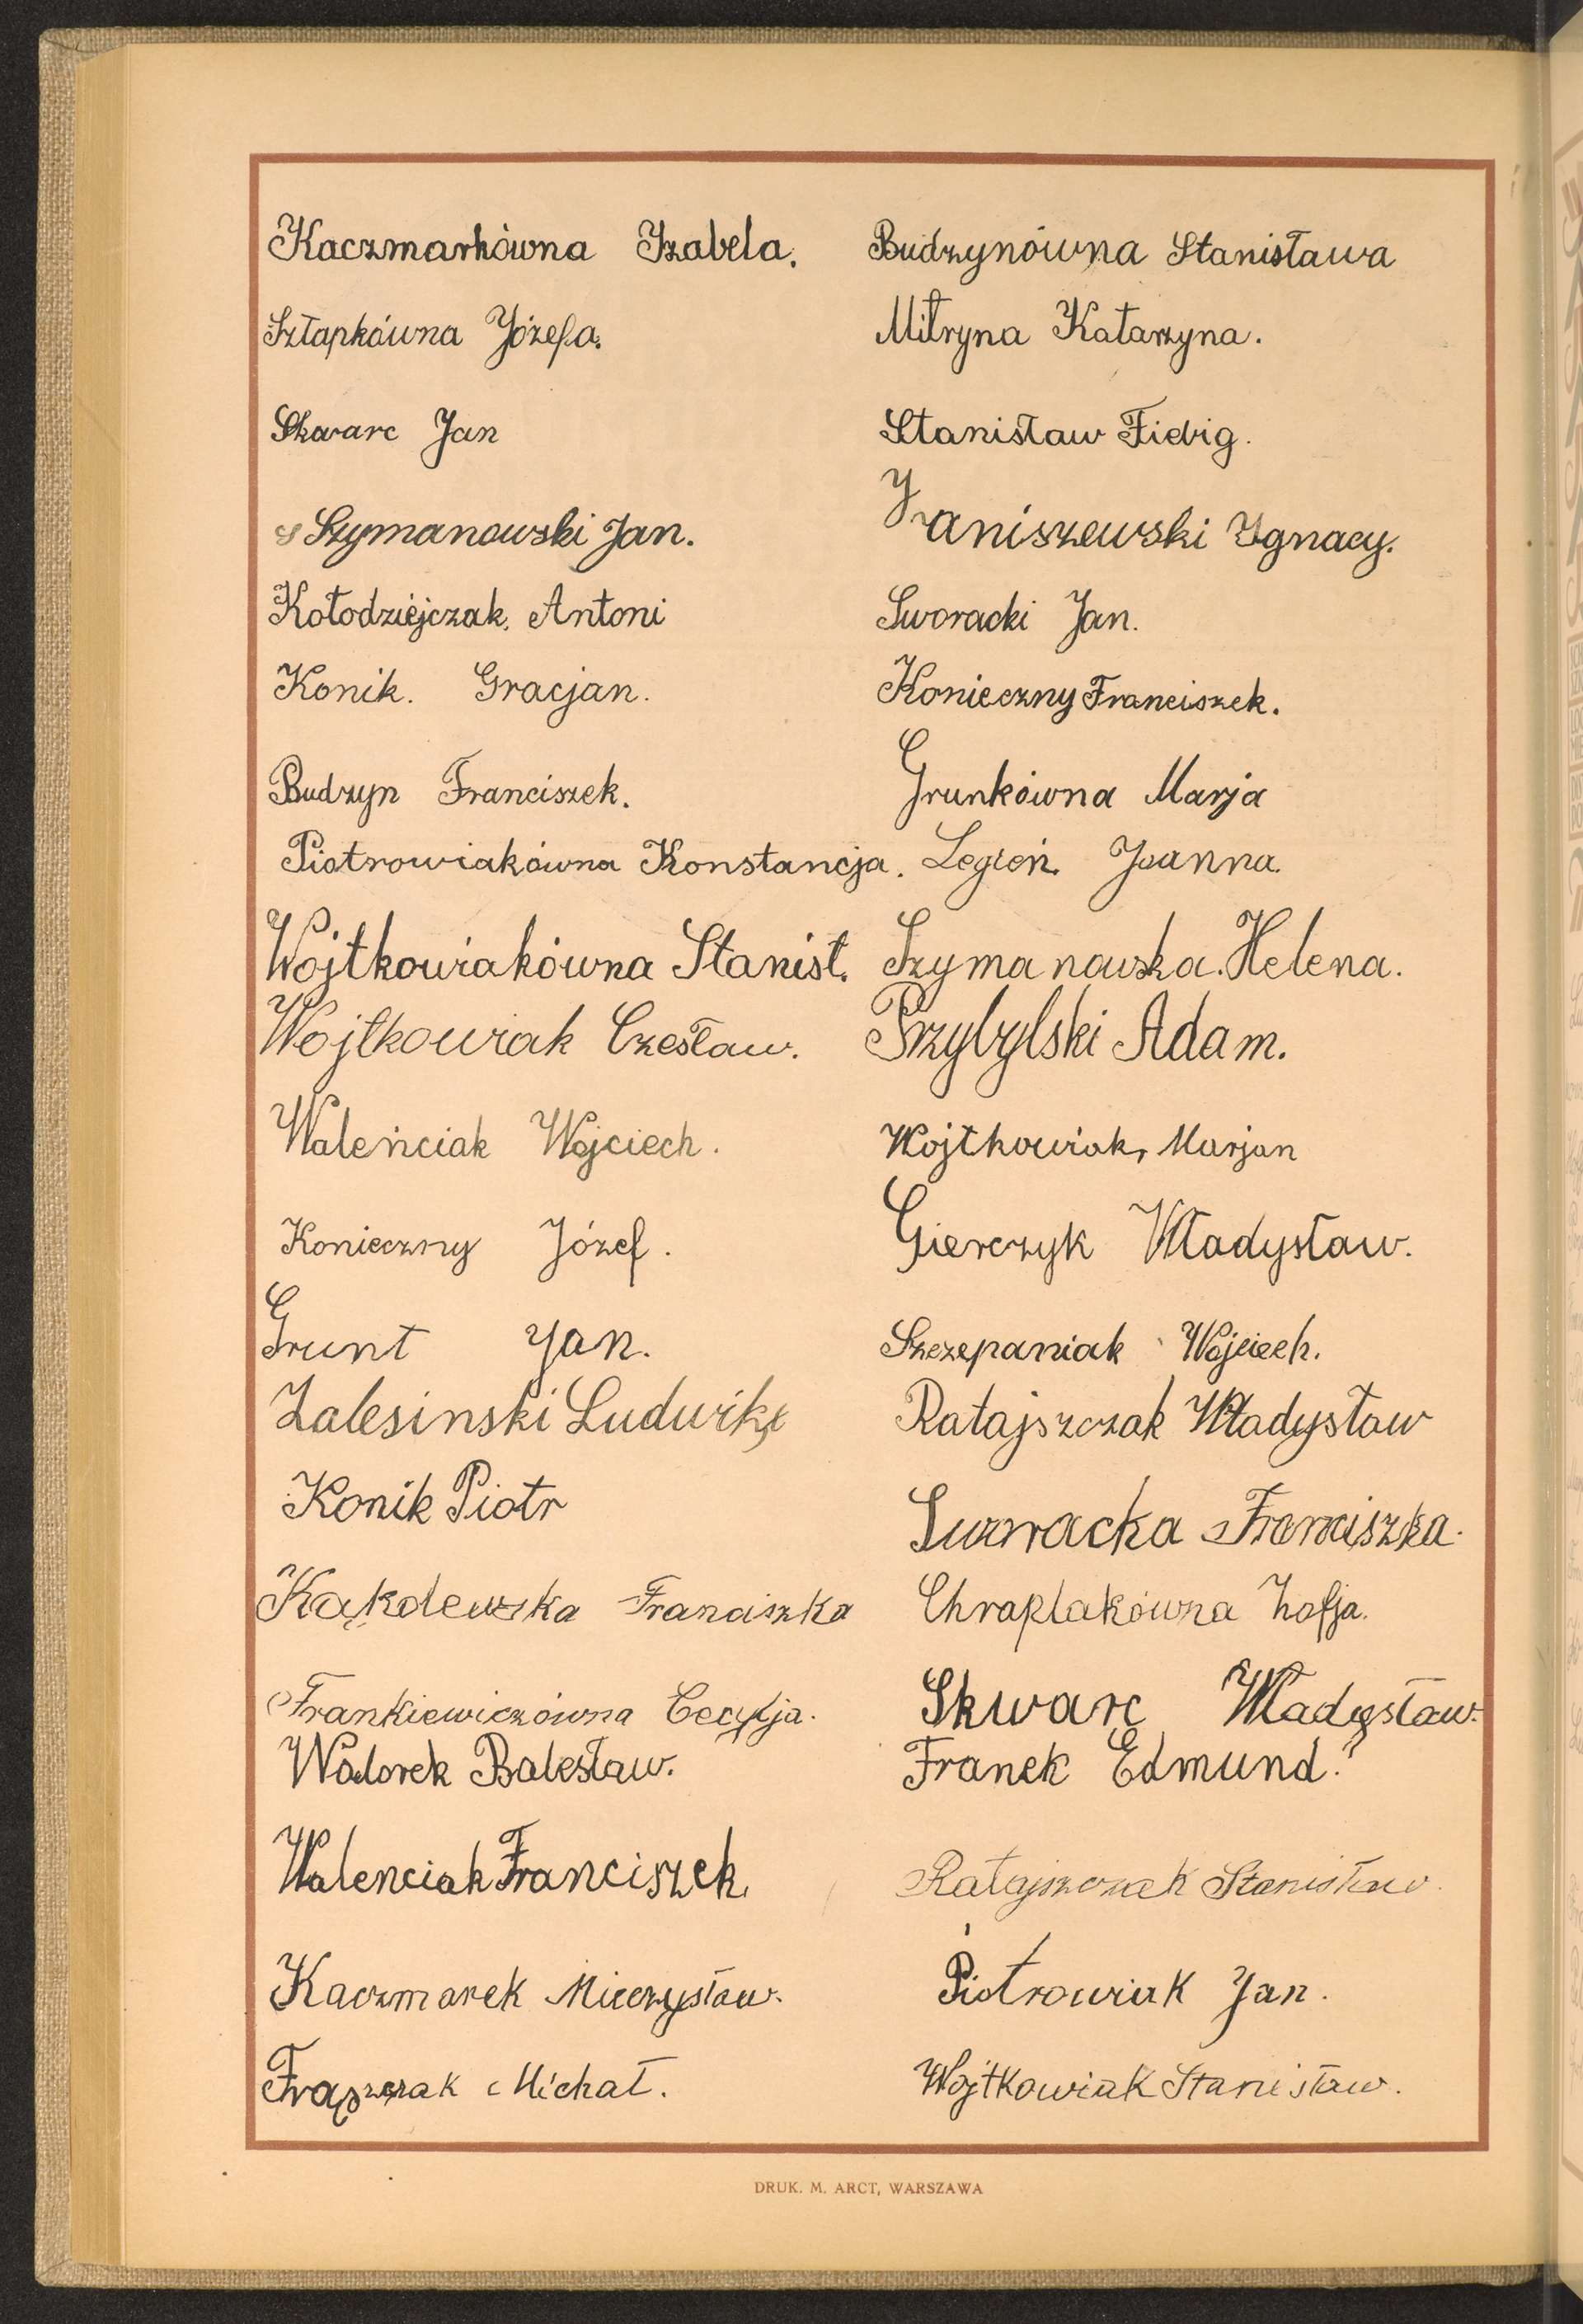 Kaczmarkówna Izabela.
Budzynówna Stanisława
Szłapkówna Józefa.
Mitryna Katarzyna.
Skwarc Jan
Stanisław Fiebig.
Szymanowski Jan.
Janiszewski Ignacy.
Kołodziejczak, Antoni
Sworacki Jan.
Konik. Gracjan.
Konieczny Franciszek.
Budzyn Franciszek.
Grunkówna Marja
Piotrowiakówna Konstancja.
Legień. Joanna.
Wojtkowiakówna Stanisł.
Szymanowska. Helena.
Wojtkowiak Czesław.
Przybylski Adam.
Waleńciak Wojciech.
Wojtkowiak, Marjan
Konieczny Józef.
Gierczyk Władysław.
Grunt Jan.
Szczepaniak Wojciech.
Zalesinski Ludwik
Ratajszczak Władysław
Konik Piotr
Sworacka Franciszka.
Kąkolewska Franciszka
Chraplakówna Zofja.
Frankiewiczówna Cecylja.
Skwarc Władysław.
Walorek Bolesław.
Franek Edmund.
Walenciak Franciszek,
Ratajszczak Stanisław.
Kaczmarek Mieczysław.
Piotrowiak Jan.
Frąszczak Michał.
Wojtkowiak Stanisław.
DRUK. M. ARCT, WARSZAWA